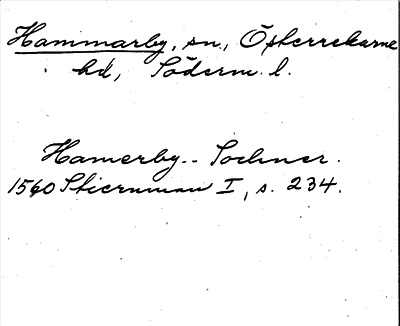 Hammarby, sn., Österrekarne
hd, Söderm. l.
Hamerby-- Sochner.
1560 Stiernman I, s. 234.